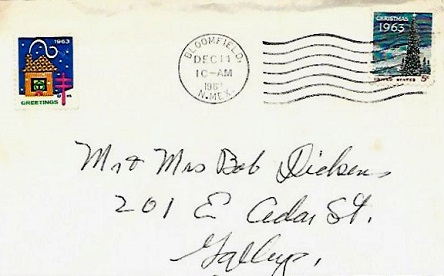 1963
GREETINGS
BLOOMFIELD,
DEC 11
10-AM
N.MEX.
CHRISTMAS
1963
UNITED STATES
5¢
Mr & Mrs Bob Dickens
201 E Cedar St.
Gallup,